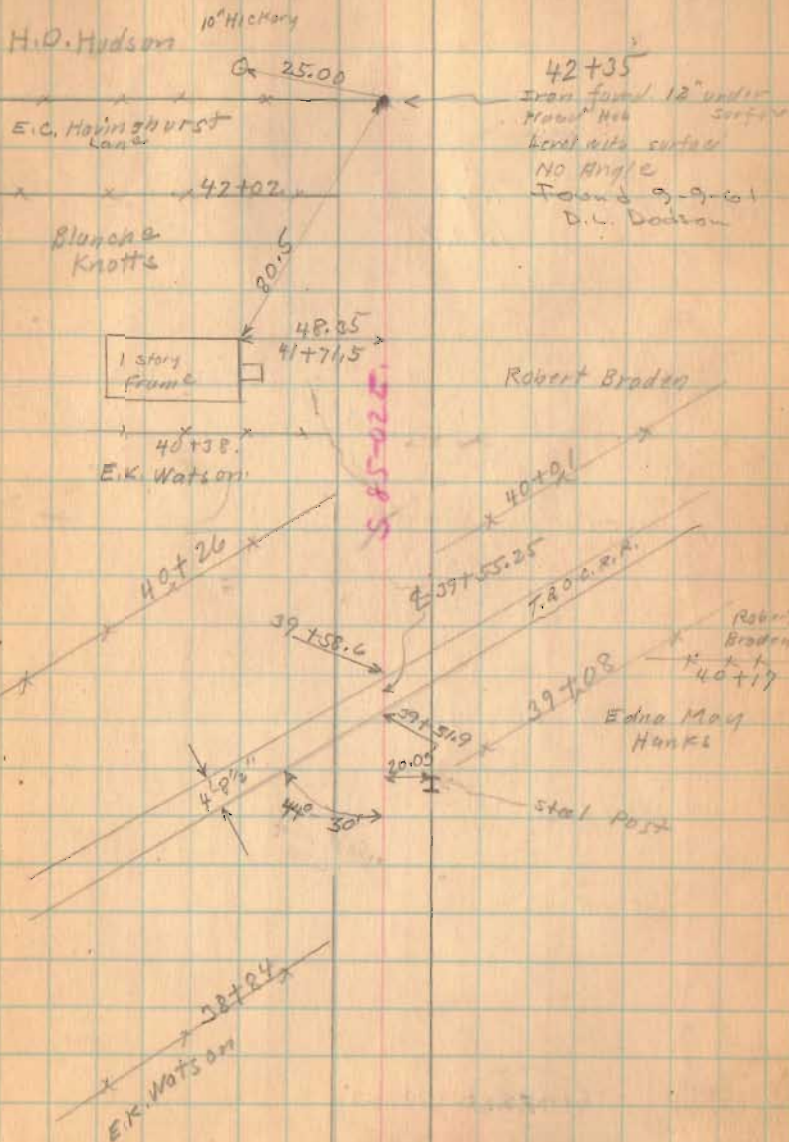 10" Hickory
H.D. Hudson
25.00
42+35
Iron found 12" under
Surface
Level with surface
No Angle
Found 9-9-61
D.L. Dodson
E.C. Havinghurst
Lane
42+02
Blanche
Knotts
80.5
48.35
41+71.5
1 story
Frame
Robert Braden
40+38.
E.K. Watson
S 85-02 E.
40+01
40+26
℄ 39+55.25
T.&O.C.R.R.
39+58.6
Robert
Braden
40+17
39+08
39+51.9
Edna May
Hanks
20.05
4' 8½"
44° 30'
Steel Post
38+84
E.K. Watson